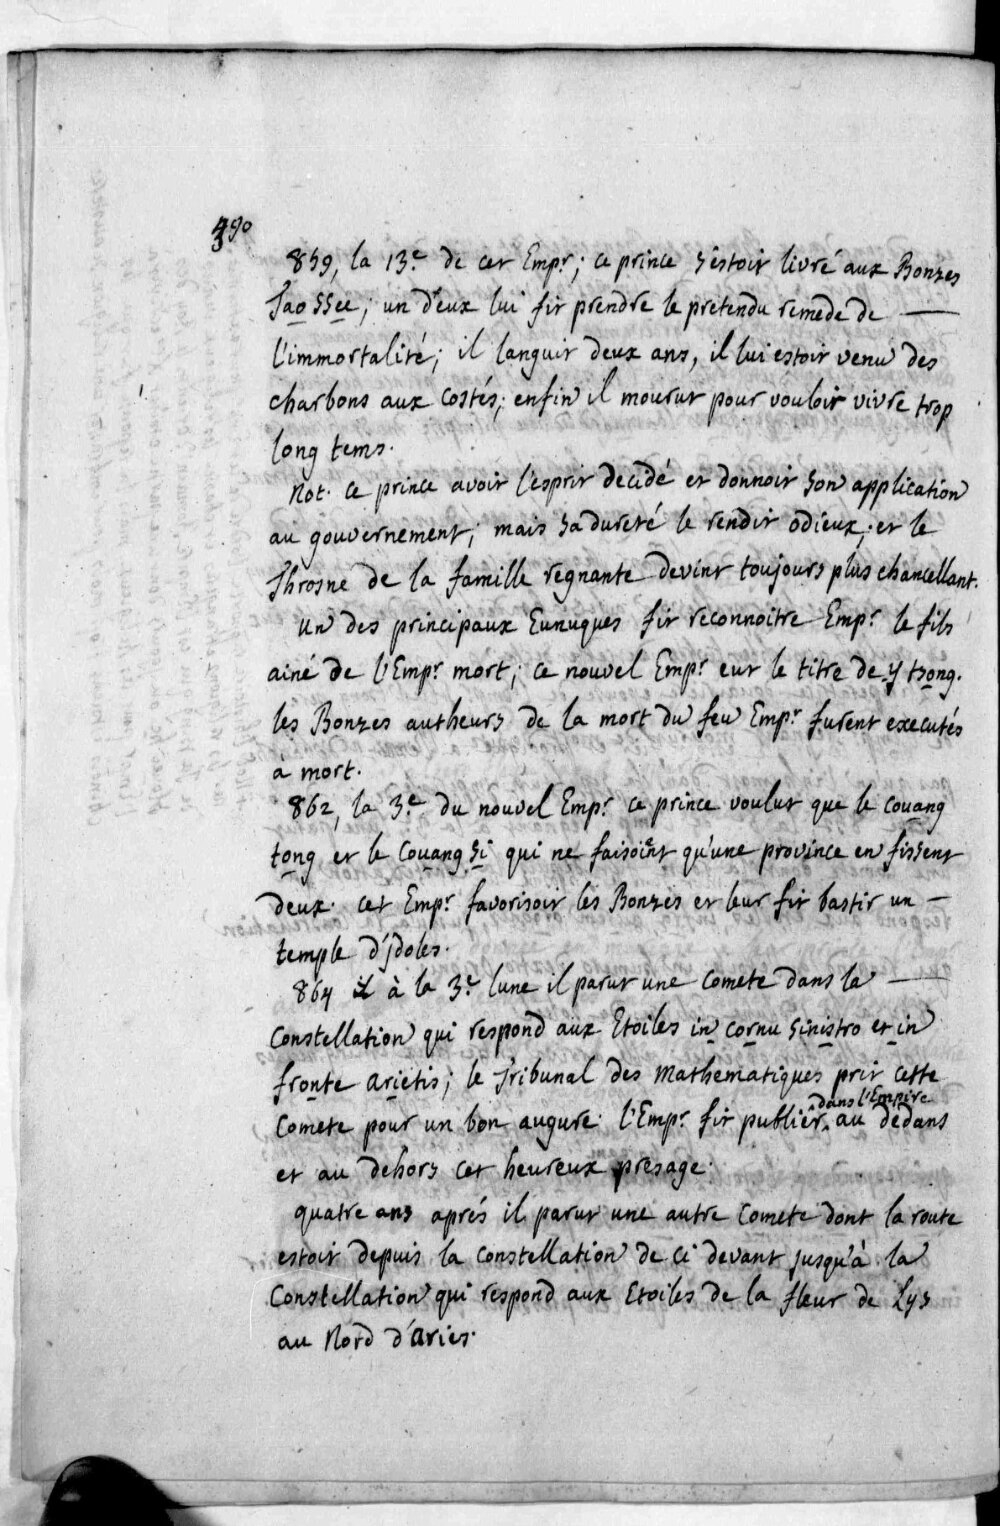 490
859, la 13.e de cet Emp.r; ce prince s'estoit livré aux Bonzes
Tao ssee; un d'eux lui fit prendre le pretendu remede de —
l'immortalité; il languit deux ans, il lui estoit venu des
charbons aux costés; enfin il mourut pour vouloir vivre trop
long tems.
Not. ce prince avoit l'esprit decidé et donnoit son application
au gouvernement; mais sa dureté le rendit odieux; et le
Throsne de la famille regnante devint toujours plus chancellant.
Un des principaux Eunuques fit reconnoitre Emp.r le fils
ainé de l'Emp.r mort; ce nouvel Emp.r eut le titre de y tsong.
les Bonzes autheurs de la mort du feu Emp.r furent executés
à mort.
862, la 3.e du nouvel Emp.r ce prince voulut que le Couang
tong et le Couang si qui ne faisoint qu'une province en fissent
deux. cet Emp.r favorisoit les Bonzes et leur fit bastir un —
temple d'jdoles.
864 à la 3.e lune il parut une Comete dans la —
Constellation qui respond aux Etoiles in cornu sinistro et in
fronte arietis; le Tribunal des Mathematiques prit cette
dans l'Empire
Comete pour un bon augure. l'Emp.r fit publier au dedans
et au dehors cet heureux presage.
quatre ans aprés il parut une autre Comete dont la route
estoit depuis la constellation de ci devant jusqu'à la
Constellation qui respond aux Etoiles de la fleur de Lys
au Nord d'aries.